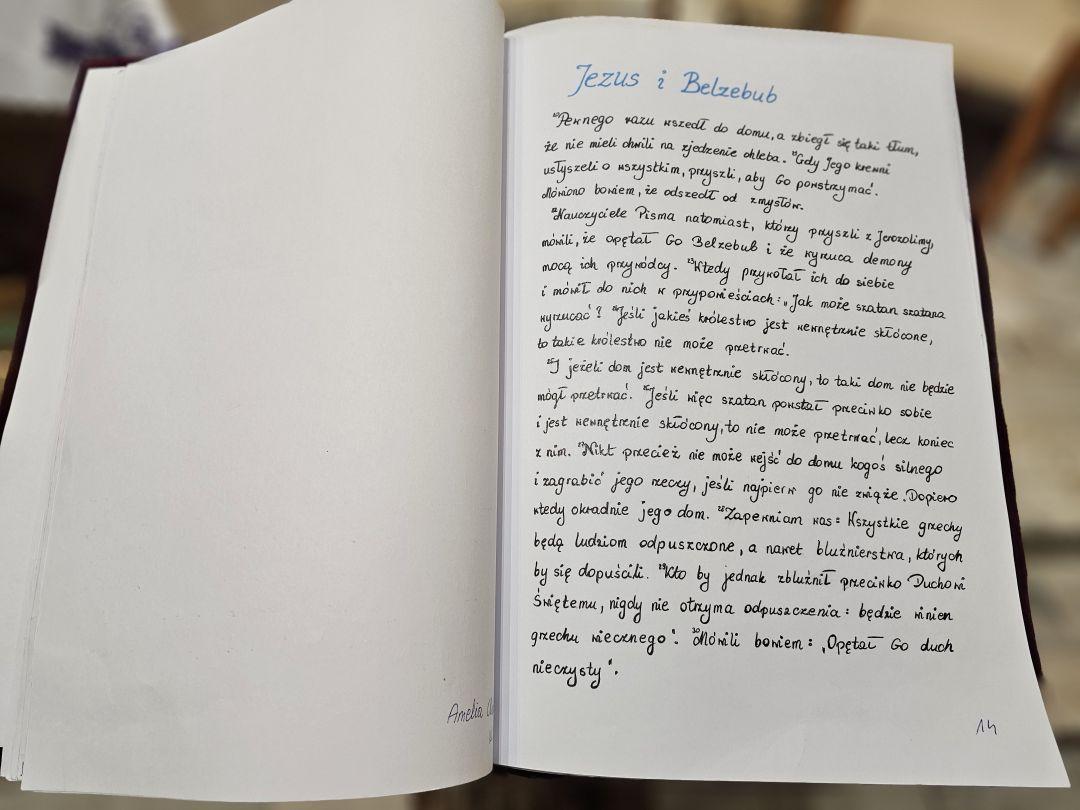 Jezus i Belzebub
²⁰Pewnego razu wszedł do domu, a zbiegł się taki tłum,
że nie mieli chwili na zjedzenie chleba. ²¹Gdy Jego krewni
usłyszeli o wszystkim, przyszli, aby Go powstrzymać.
Mówiono bowiem, że odszedł od zmysłów.
²²Nauczyciele Pisma natomiast, którzy przyszli z Jerozolimy,
mówili, że opętał Go Belzebub i że wyrzuca demony
mocą ich przywódcy. ²³Wtedy przywołał ich do siebie
i mówił do nich w przypowieściach: „Jak może szatan szatana
wyrzucać? ²⁴Jeśli jakieś królestwo jest wewnętrznie skłócone,
to takie królestwo nie może przetrwać.
²⁵I jeżeli dom jest wewnętrznie skłócony, to taki dom nie będzie
mógł przetrwać. ²⁶Jeśli więc szatan powstał przeciwko sobie
i jest wewnętrznie skłócony, to nie może przetrwać, lecz koniec
z nim. ²⁷Nikt przecież nie może wejść do domu kogoś silnego
i zagrabić jego rzeczy, jeśli najpierw go nie zwiąże. Dopiero
wtedy okradnie jego dom. ²⁸Zapewniam was: Wszystkie grzechy
będą ludziom odpuszczone, a nawet bluźnierstwa, których
by się dopuścili. ²⁹Kto by jednak zbluźnił przeciwko Duchowi
Świętemu, nigdy nie otrzyma odpuszczenia: będzie winien
grzechu wiecznego". ³⁰Mówili bowiem: „Opętał Go duch
nieczysty".
14
Amelia